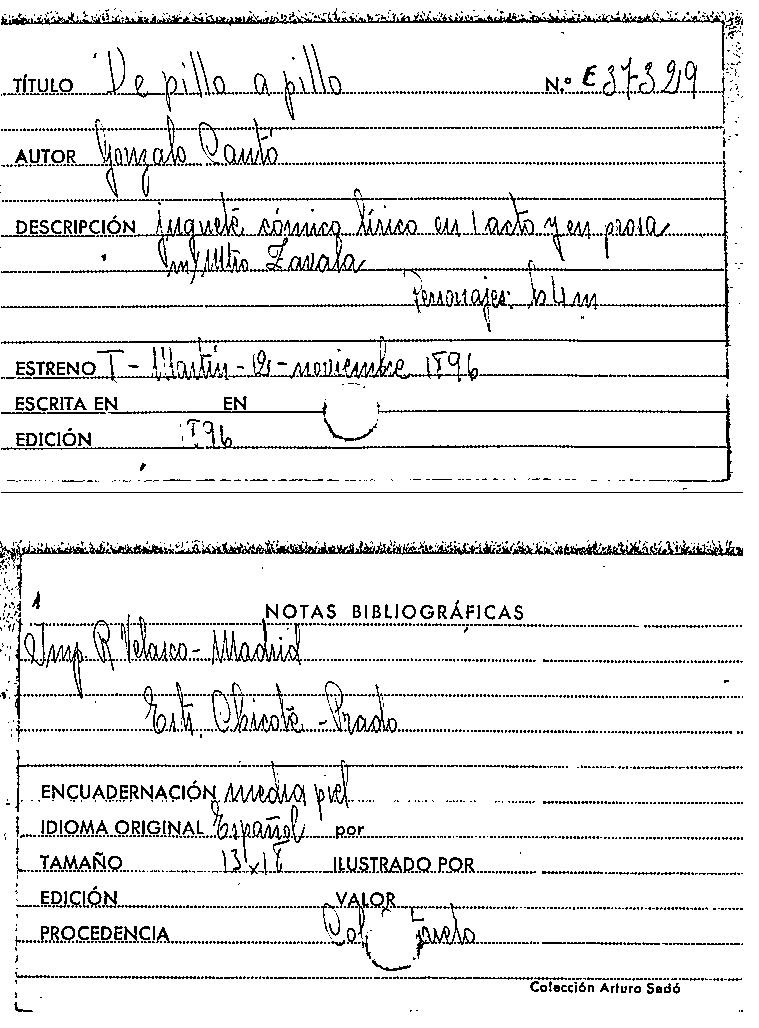 TÍTULO De pillo a pillo N.º E 37329
AUTOR Gonzalo Cantó
DESCRIPCIÓN juguete cómico lírico en 1 acto y en prosa
Mtro Zavala
Personajes: 4 m
ESTRENO T - Martín - 12 - noviembre 1896
ESCRITA EN EN
EDICIÓN 1896
1
NOTAS BIBLIOGRÁFICAS
Imp R Velasco - Madrid
Estr. Chicote - Prado
ENCUADERNACIÓN media piel
IDIOMA ORIGINAL Español por
TAMAÑO 13x18 ILUSTRADO POR
EDICIÓN VALOR
PROCEDENCIA Col
Colección Arturo Sedó